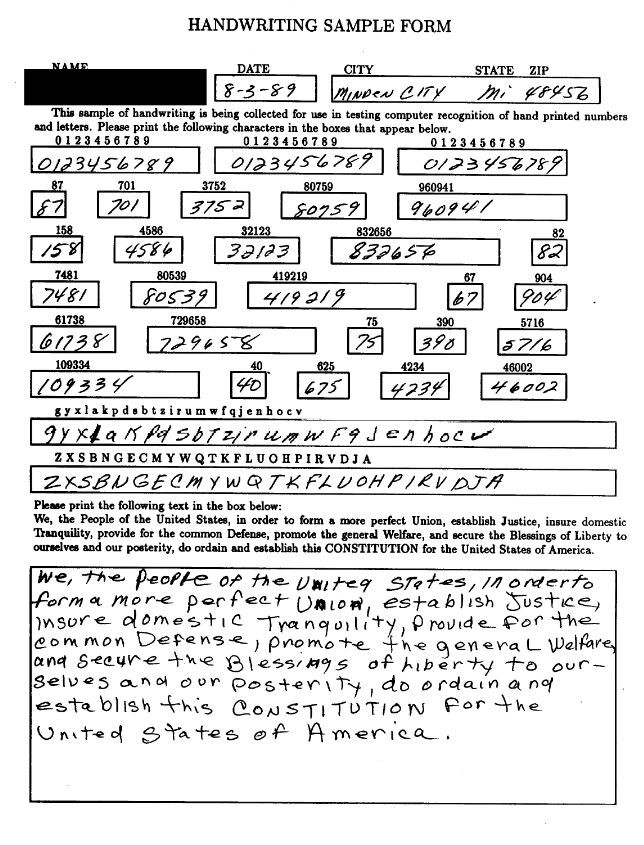 HANDWRITING SAMPLE FORM
NAME DATE CITY STATE ZIP
8-3-89 MINDEN CITY Mi 48456
This sample of handwriting is being collected for use in testing computer recognition of hand printed numbers
and letters. Please print the following characters in the boxes that appear below.
0 1 2 3 4 5 6 7 8 9 0 1 2 3 4 5 6 7 8 9 0 1 2 3 4 5 6 7 8 9
0123456789 0123456789 0123456789
87 701 3752 80759 960941
87 701 3752 80759 960941
158 4586 32123 832656 82
158 4586 32123 832656 82
7481 80539 419219 67 904
7481 80539 419219 67 904
61738 729658 75 390 5716
61738 729658 75 390 5716
109334 40 625 4234 46002
109334 40 675 4234 46002
g y x l a k p d s b t z i r u m w f q j e n h o c v
g y x l a K p d s b T z i r u m w F q J e n h o c v
Z X S B N G E C M Y W Q T K F L U O H P I R V D J A
Z X S B N G E C M Y W Q T K F L U O H P I R V D J A
Please print the following text in the box below:
We, the People of the United States, in order to form a more perfect Union, establish Justice, insure domestic
Tranquility, provide for the common Defense, promote the general Welfare, and secure the Blessings of Liberty to
ourselves and our posterity, do ordain and establish this CONSTITUTION for the United States of America.
We, the People of the United States, in order to
form a more perfect Union, establish Justice,
insure domestic Tranquility, Provide for the
common Defense, promote the general Welfare,
and secure the Blessings of Liberty to our-
selves and our posterity, do ordain and
establish this CONSTITUTION for the
United States of America.